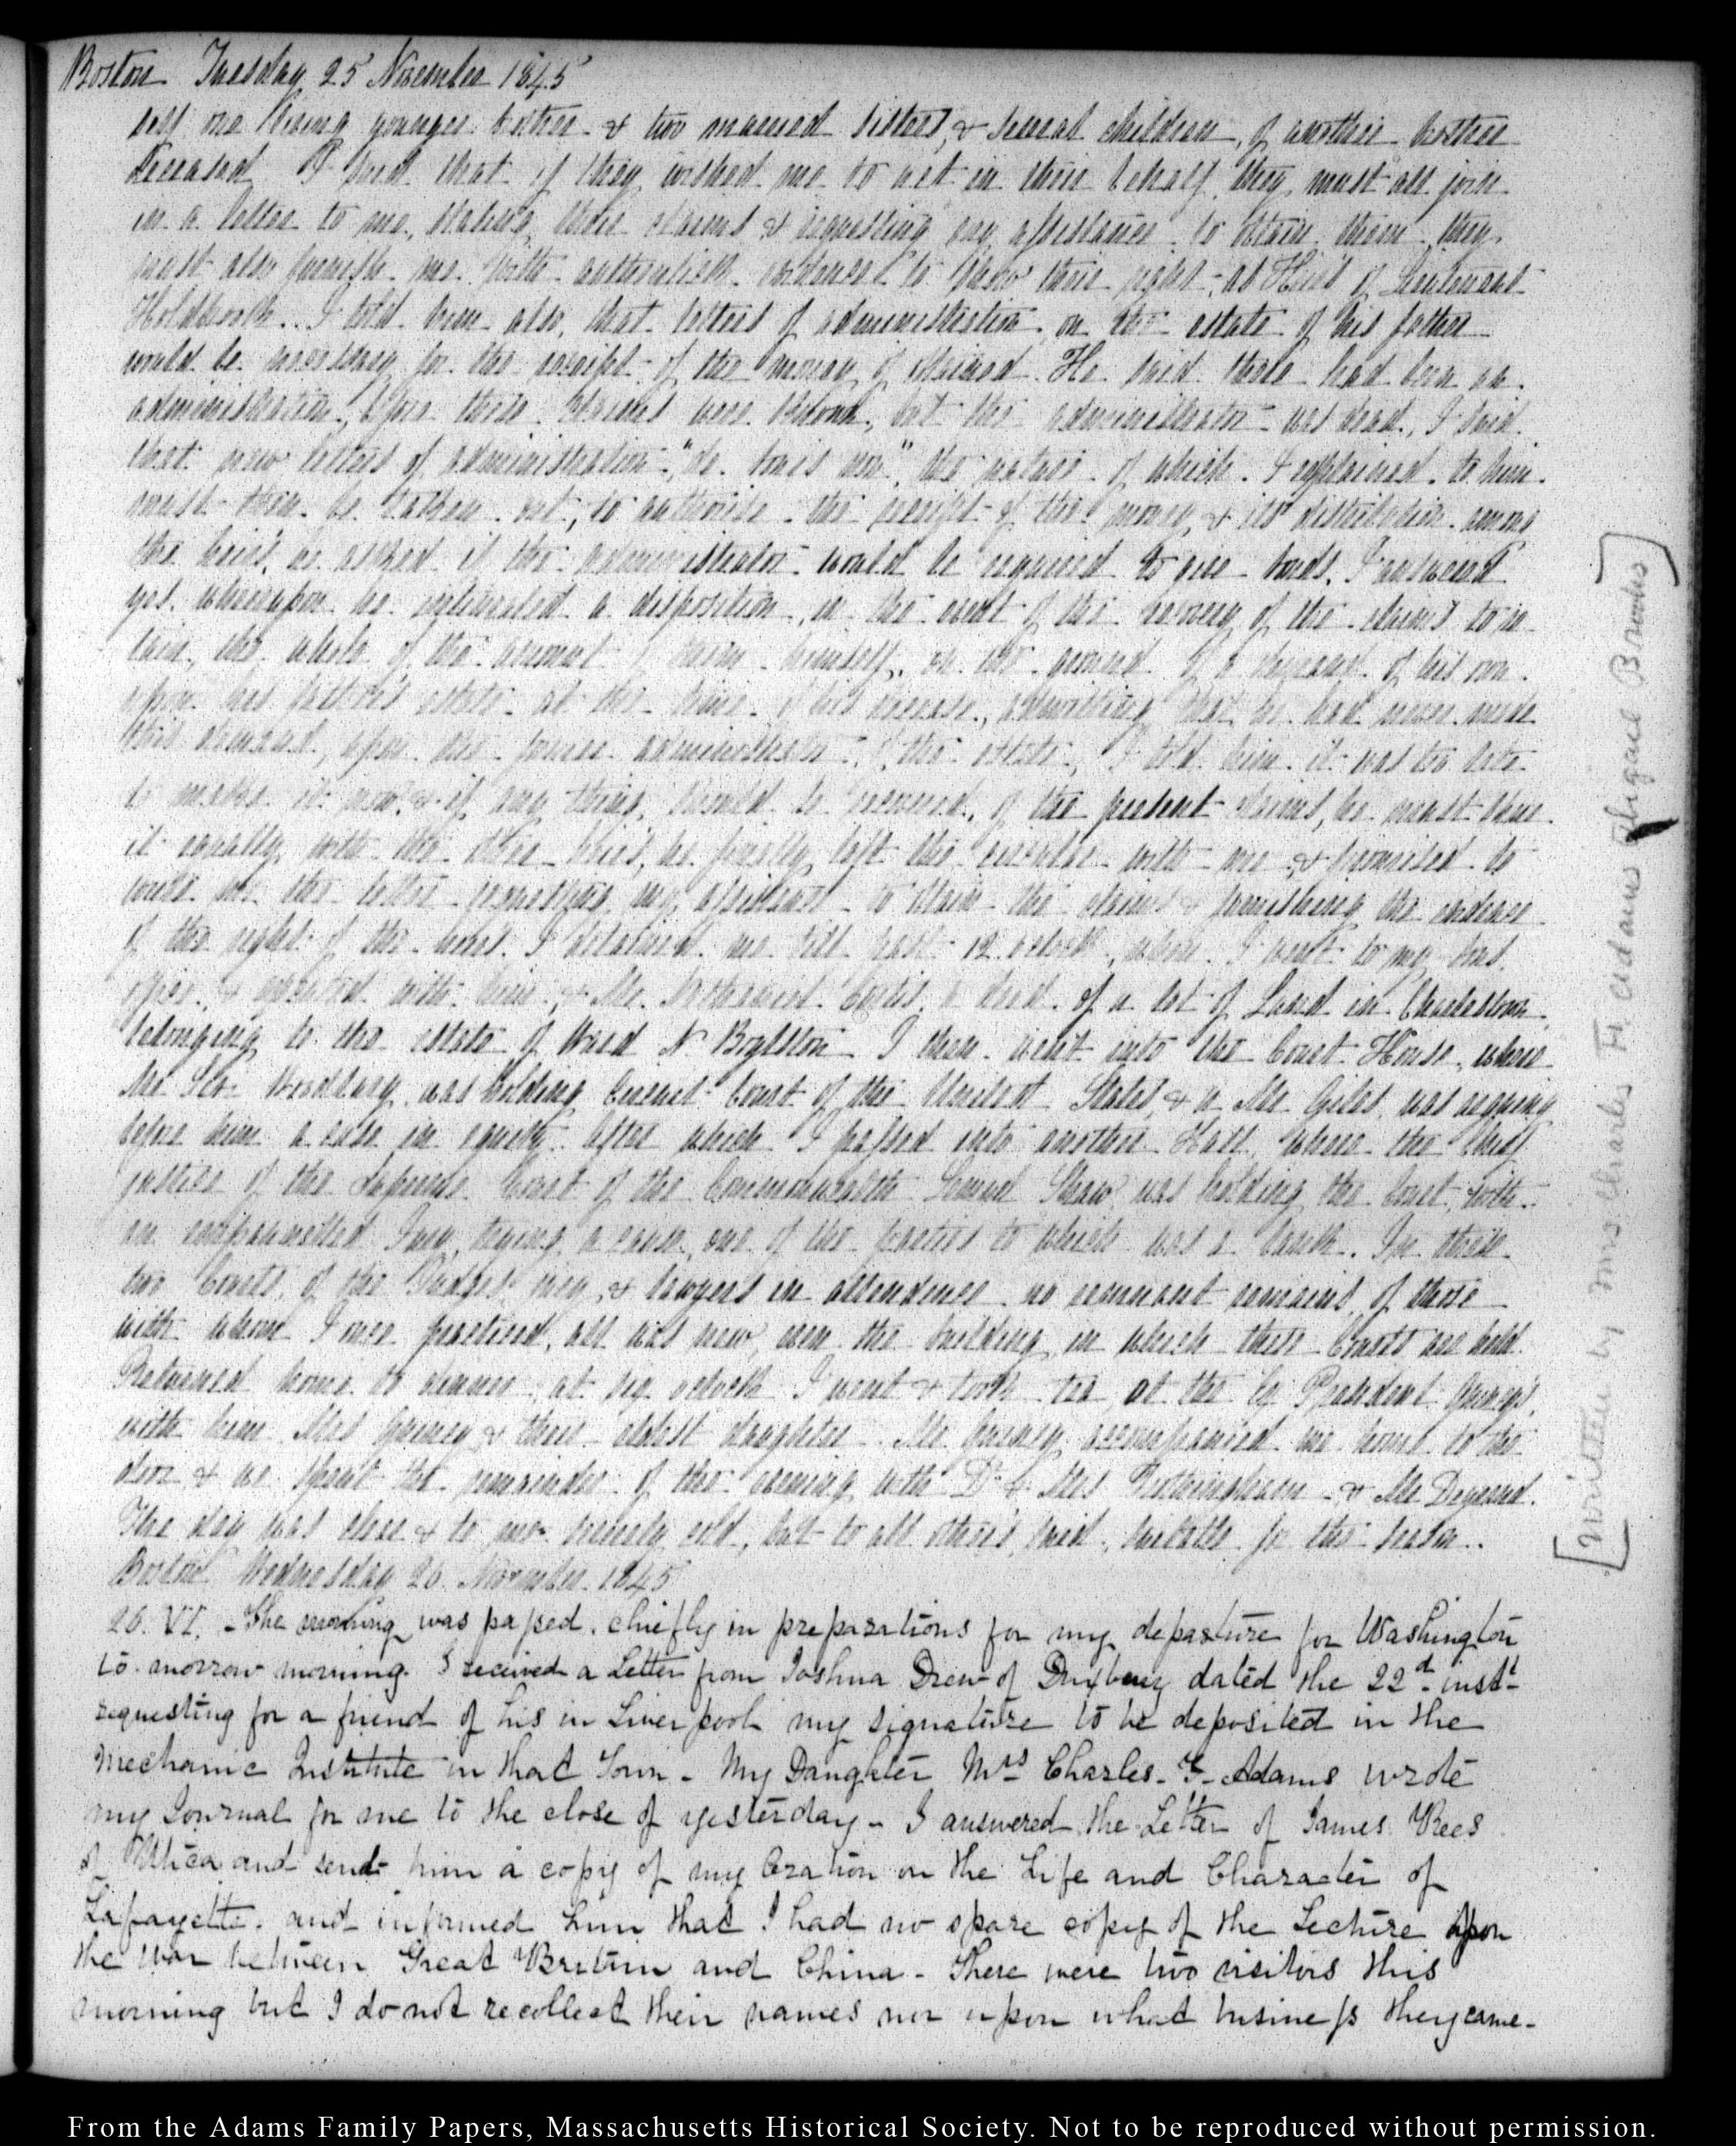 Boston Tuesday 25 November 1845
self one living younger brother & two married sisters, & several children, of another brother
deceased. I said that if they wished me to act in their behalf, they must all join
in a letter to me, stating their claims & requesting my assistance to obtain them, they
must also furnish me with authentick evidence to show their right, as Heirs of Lieutenant
Holdbrook. I told him also, that letters of administration on the estate of his father
would be necessary for the receipt of the money if obtained. He said there had been an
administration, before these claims were known, but the administrator was dead, I said
that new letters of administration "de bonis non," the nature of which I explained to him
must then be taken out, to authorise the receipt of the money, & its distribution among
the heirs, he asked if the administrator would be required to give bonds, I answered
yes, whereupon he intimated a disposition, in the event of the recovery of the claims to re-
tain, the whole of the amount himself, on the ground of a demand of his own
upon his father's estate at the time of his decease, admitting that he had never made
this demand, upon the former administrator of the estate, I told him it was too late
to make it now, & if any thing should be recovered, of the present claims, he must share
it equally with the other heirs, he finally left the circular with me & promised to
write me the letter requesting my assistance to obtain the claims & furnishing the evidence
of the right of the heirs. detained me till past 12 o'clock, when I went to my son's
office & executed with him, & Mr. Nathaniel Curtis, a deed of a lot of Land in Charlestown,
belonging to the estate of Ward N. Boylston. I then went into the Court House, where
Mr. Levi Woodbury was holding Circuit Court of the United States, & a Mr. Giles, was arguing
before him a case in equity. After which I passed into another Hall, where the Chief
justice of the Supreme Court of the Commonwealth Lemuel Shaw, was holding the Court, with
an empannelled Jury, trying a cause, one of the parties to which was a bank. In these
two Courts, of the Judges, jury, & lawyers in attendance no remnant remains, of those
with whom I once practiced, all was new, even the building, in which these Courts are held.
Returned home to dinner, at six o'clock I went & took tea at the Ex President Quincy's,
with him Mrs Quincy & their eldest daughter. Mr. Quincy accompanied me home to the
door & we spent the remainder of the evening with Dr. & Mrs Frothingham & Mr Degrand.
The day was clear & to me severely cold, but to all others, mild, suitable for the season.
Boston Wednesday 26. November. 1845
26. VI. The morning was passed, chiefly in preparations for my departure for Washington
to-morrow morning. I received a Letter from Joshua Drew of Duxbury dated the 22d. instt.
requesting for a friend of his in Liverpool my signature to be deposited in the
Mechanic Institute in that Town - My Daughter Mrs Charles. F. Adams wrote
my Journal for me to the close of yesterday - I answered the Letter of James Rees
of Utica and send him a copy of my Oration on the Life and Character of
Lafayette. and informed him that I had no spare copy of the Lecture upon
the War between Great Britain and China - There were two visitors this
morning but I do not recollect their names nor upon what business they came -
[Written by Mrs Charles F. Adams Abigail Brooks]
From the Adams Family Papers, Massachusetts Historical Society. Not to be reproduced without permission.